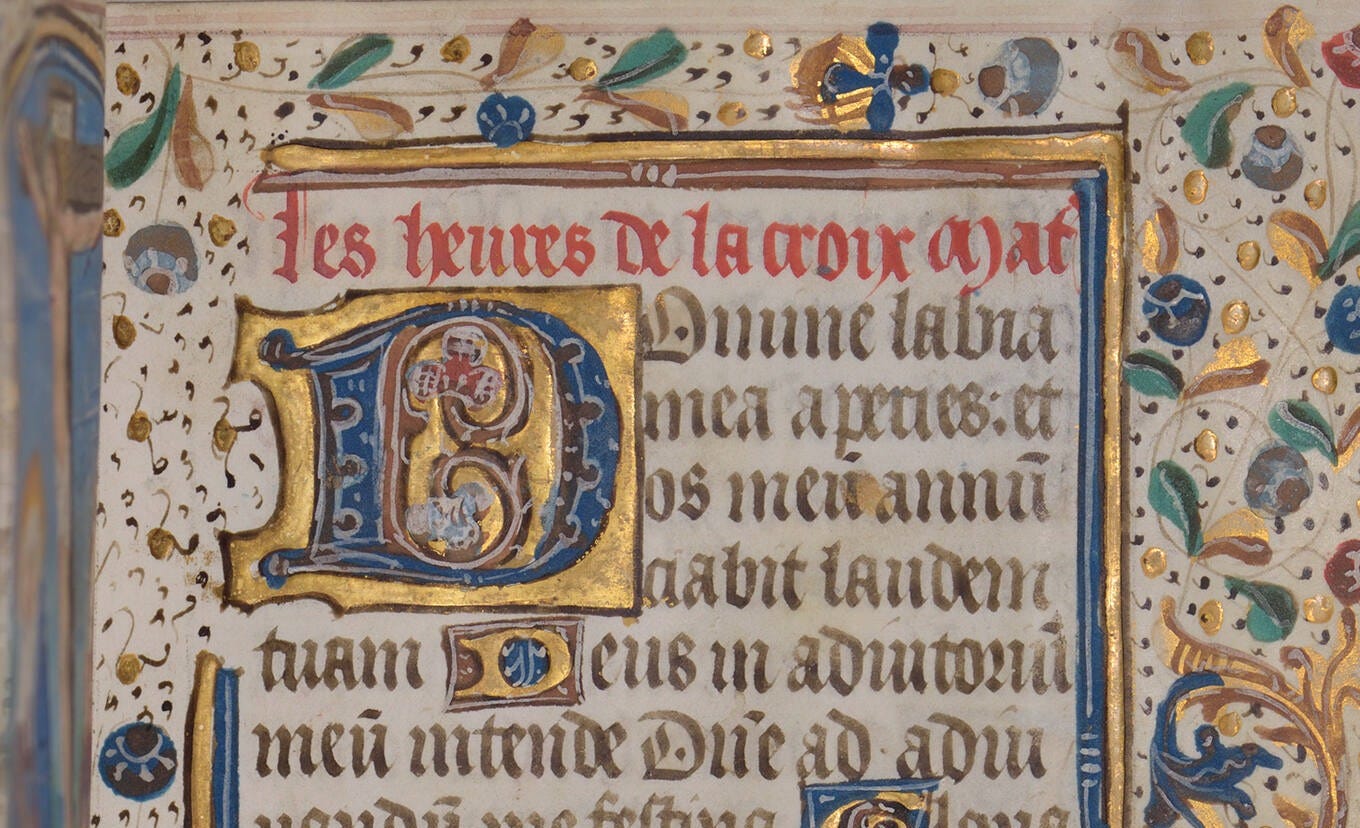 les heures de la croix Mat
Domine labia
mea aperies: et
os meū annū
ciabit laudem
tuam Deus in adiutoriū
meū intende Dn̄e ad adiu
uandū me festina